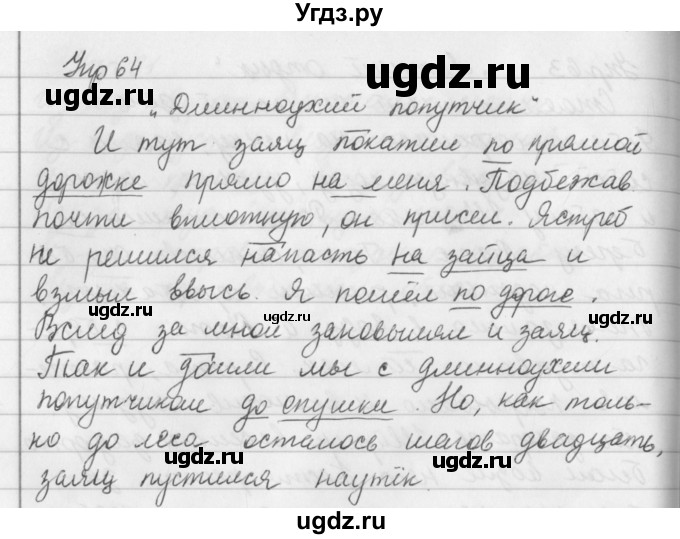 Угдз.ру
Упр 64
„Длинноухий попутчик"
И тут заяц покатил по прямой
дорожке прямо на меня. Подбежав
почти вплотную, он присел. Ястреб
не решился напасть на зайца и
взмыл ввысь. Я пошёл по дороге.
Вслед за мной заковылял и заяц.
Так и дошли мы с длинноухим
попутчиком до опушки. Но, как толь-
ко до леса осталось шагов двадцать,
заяц пустился наутёк.
ugdz.ru
ugdz.ru
ugdz.ru
ugdz.ru
ugdz.ru
ugdz.ru
ugdz.ru
ugdz.ru
ugdz.ru